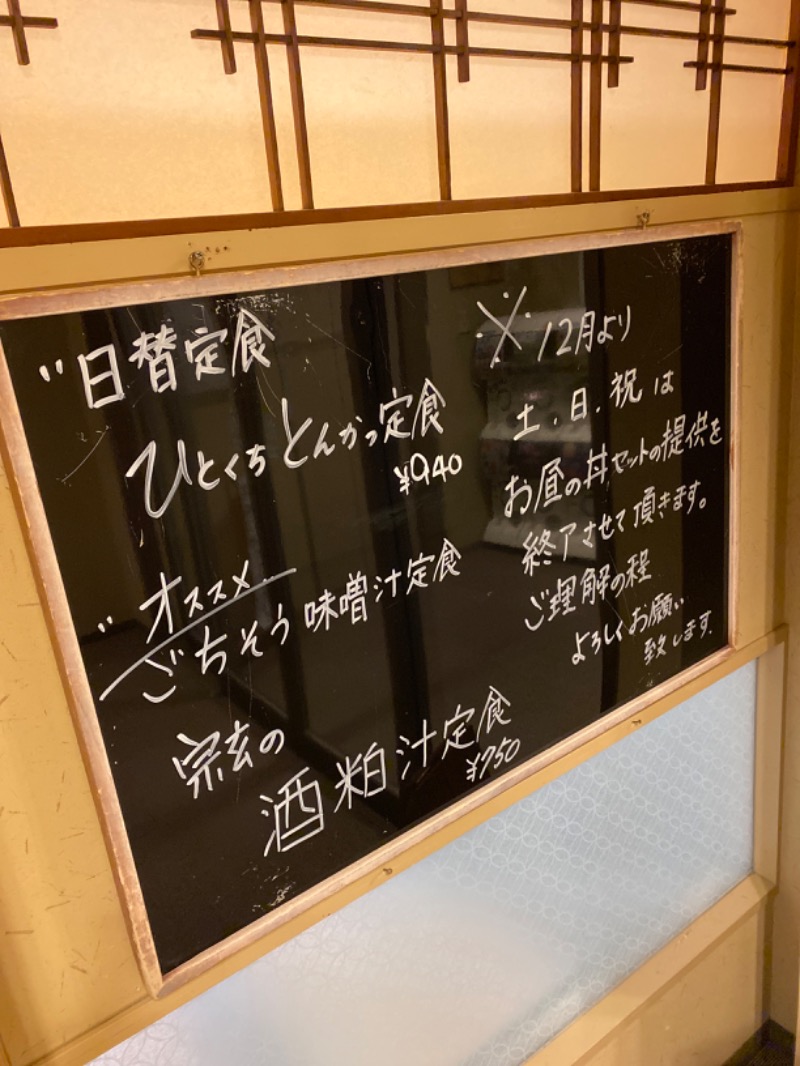 〃日替定食
ひとくちとんかつ定食
¥940
〃オススメ
ごちそう味噌汁定食
宗玄の
酒粕汁定食
¥750
※12月より
土.日.祝は
お昼の丼セットの提供を
終了させて頂きます。
ご理解の程
よろしくお願い
致します.